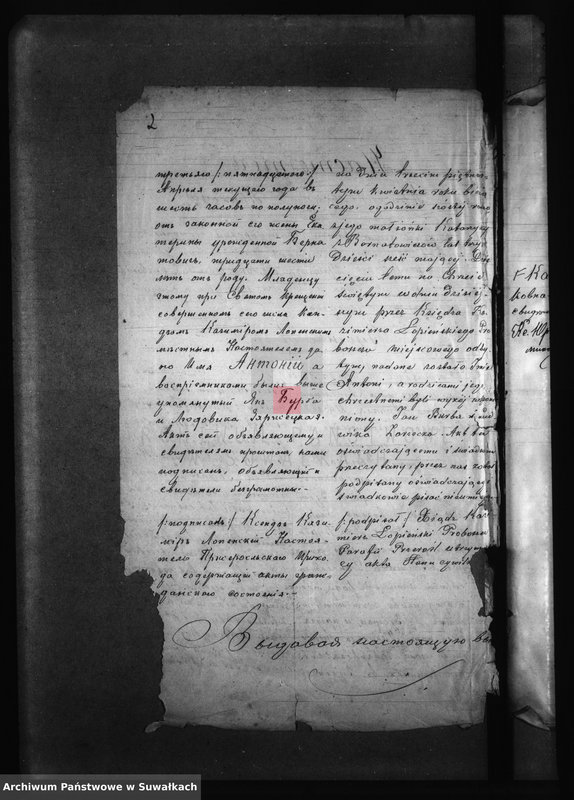 2
третьяго /:пятнадцатого:/
Апрѣля текущаго года въ
шесть часовъ по полуночи
отъ законной его жены Ека
терины урожденной Берна
товичъ, тридцати шести
лѣтъ отъ роду. Младенцу
этому при Святомъ крещеніи
совершенномъ сего числа Ксен
дзомъ Казимиромъ Лопенскимъ
мѣстнымъ Настоятелемъ да
но имя Антоній а
воспріемниками были выше
упомянутый Янъ Бурба
и Людовика Заржецкая.
Актъ сей объявляющему и
свидѣтелямъ прочитанъ, нами
подписанъ, объявляющій и
свидѣтели безграмотны.--
/:подписалъ:/ Ксендзъ Кази
миръ Лопенскій Настоя
тель Пржеросльскаго Прихо
да содержащій акты граж
данскаго состоянія.--
na dniu trzecim piętnas
tym kwietnia roku bieżą
cego, o godzinie szóstej rano
z jego małżonki Katarzyny
z Bernatowiczów lat trzy
dzieści sześć mającej. Dzie
cięciu temu na Chrzcie
świętym w dniu dzisiej
szym przez Księdza Ka
zimierza Łopieńskiego Pro
boszcza miejscowego odby
tym, nadane zostało Imie
Antoni, a rodzicami jego
chrzestnemi byli wyżej wspom
niony Jan Burba i Lud
wika Zarzecka. Akt ten
oświadczającemu i świadkom
przeczytany, przez nas został
podpisany oświadczający
świadkowie pisać nieumieją
/:podpisał:/ Ksiądz Kazi
mierz Łopieński Proboszcz
Parafii Przerośl utrzymują
cy akta Stanu cywilnego
Выдавая настоящую вы